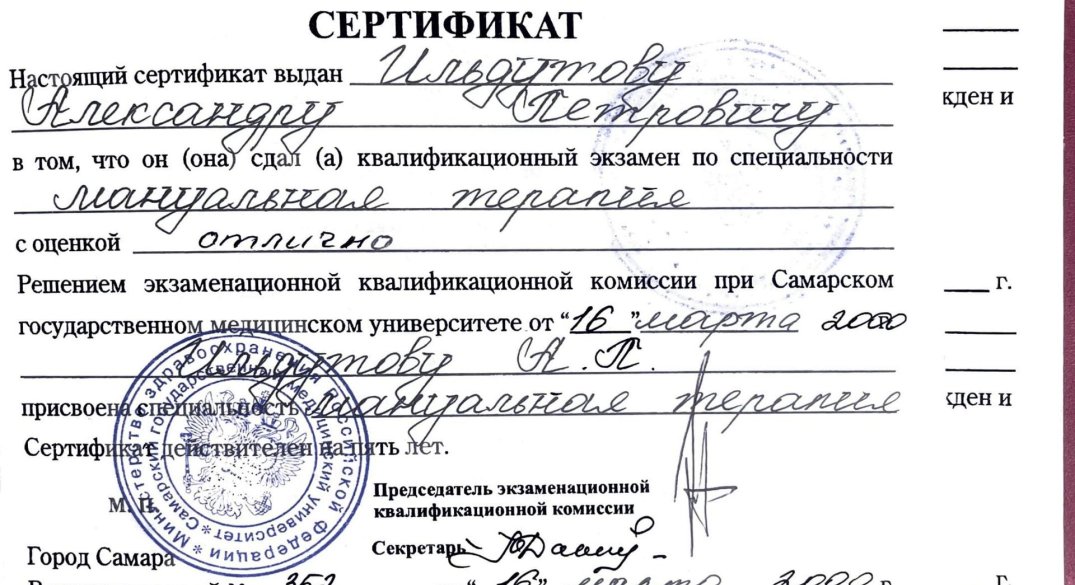 СЕРТИФИКАТ
Настоящий сертификат выдан Ильдутову
Александру Петровичу
ждени
в том, что он (она) сдал (а) квалификационный экзамен по специальности
мануальная терапия
с оценкой отлично
Решением экзаменационной квалификационной комиссии при Самарском
г.
государственном медицинском университете от “16” марта 2000
Ильдутову А. П.
присвоена специальность мануальная терапия
жден и
Сертификат действителен на пять лет.
Министерство здравоохранения Российской Федерации
Самарский государственный медицинский университет
м. п.
Председатель экзаменационной
квалификационной комиссии
Секретарь
Город Самара
352 “16” марта 2000 г.
г.